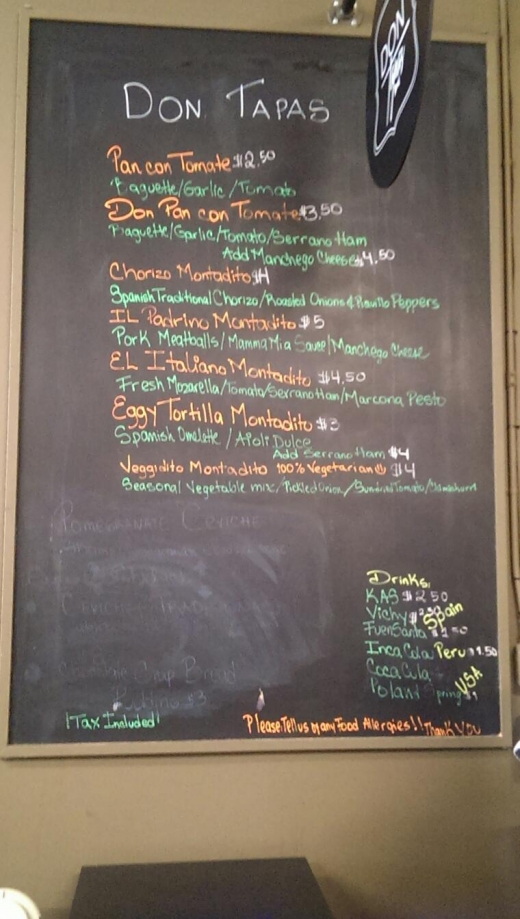 DON TAPAS
DON
Pan con Tomate $2.50
Baguette/Garlic/Tomato
Don Pan con Tomate $3.50
Baguette/Garlic/Tomato/Serrano Ham
Add Manchego Cheese $4.50
Chorizo Montadito $4
Spanish Traditional Chorizo/Roasted Onions & Piquillo Peppers
IL Padrino Montadito $5
Pork Meatballs/Mamma Mia Sauce/Manchego Cheese
EL Italiano Montadito $4.50
Fresh Mozarella/Tomato/Serrano Ham/Marcona Pesto
Eggy Tortilla Montadito $3
Spanish Omelette / Aioli Dulce
Add Serrano Ham $4
Veggidito Montadito 100% Vegetarian $4
Seasonal Vegetable mix/Pickled Onion/Sundried Tomato/
POMEGRANATE CEVICHE
CEVICHE TRADITIONAL
Bread
Pudding $3
Drinks:
KAS $2.50
Vichy $2.50 Spain
FuenSanta $1.50
Inca Cola Peru $1.50
Coca Cola
Poland Spring $1 USA
!Tax Included!
Please Tell us of any Food Allergies!! Thank You